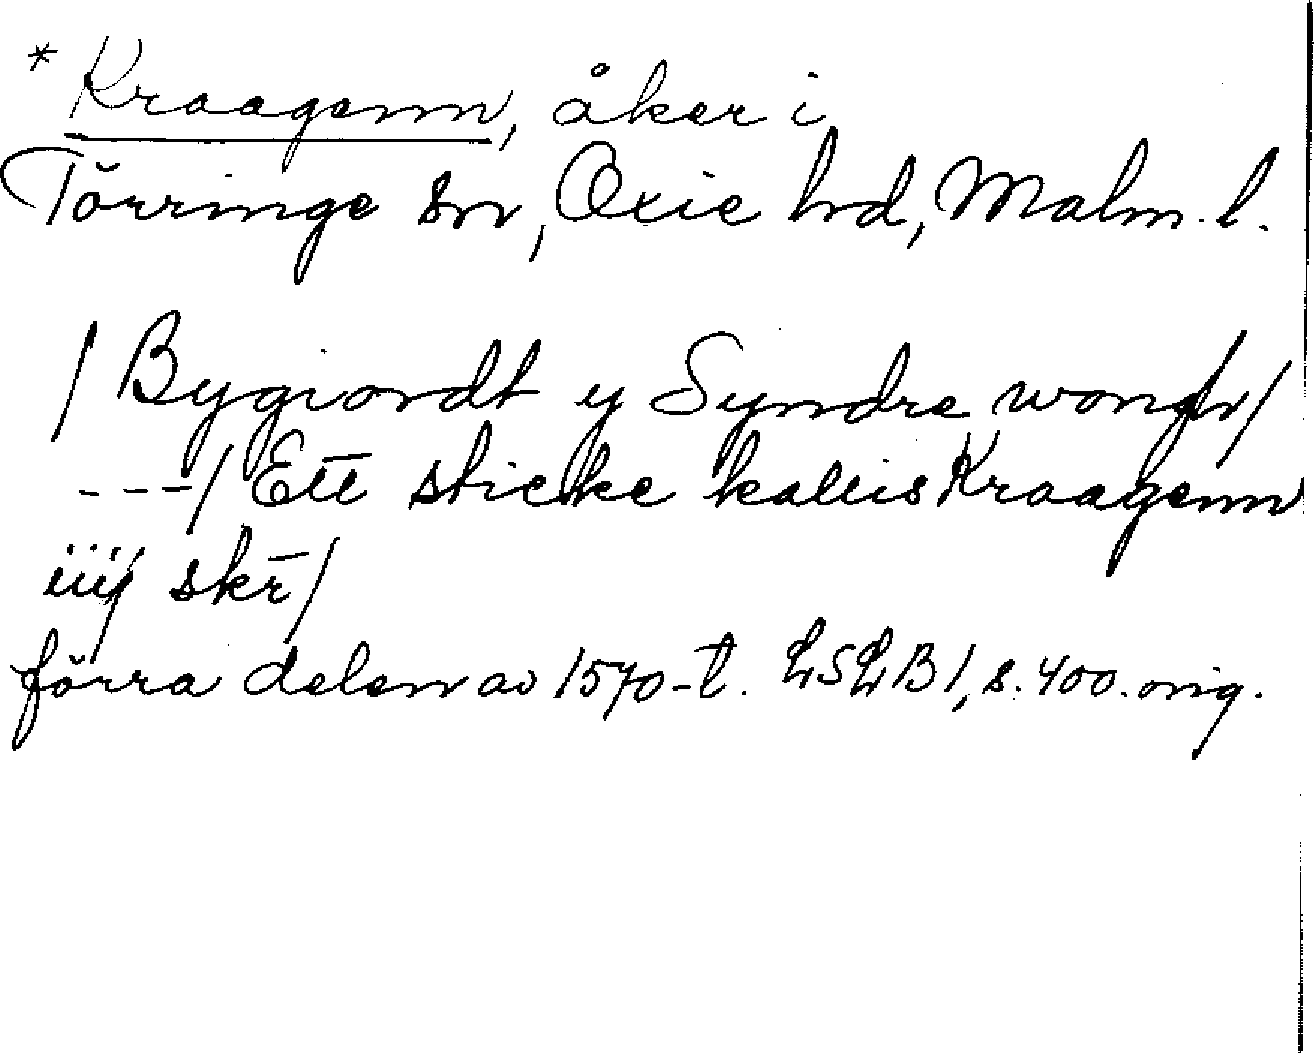 * Kraagenn, åker i
Törringe sn, Oxie hd, Malm. l.
/ Bygiordt y Syndre wongn /
---/ Ett sticke kalles Kraagenn
iiij skr̄ /
förra delen av 1570-t. LSLB 1, s. 400. orig.